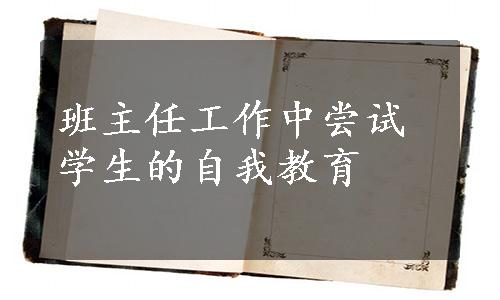 班主任工作中尝试
学生的自我教育